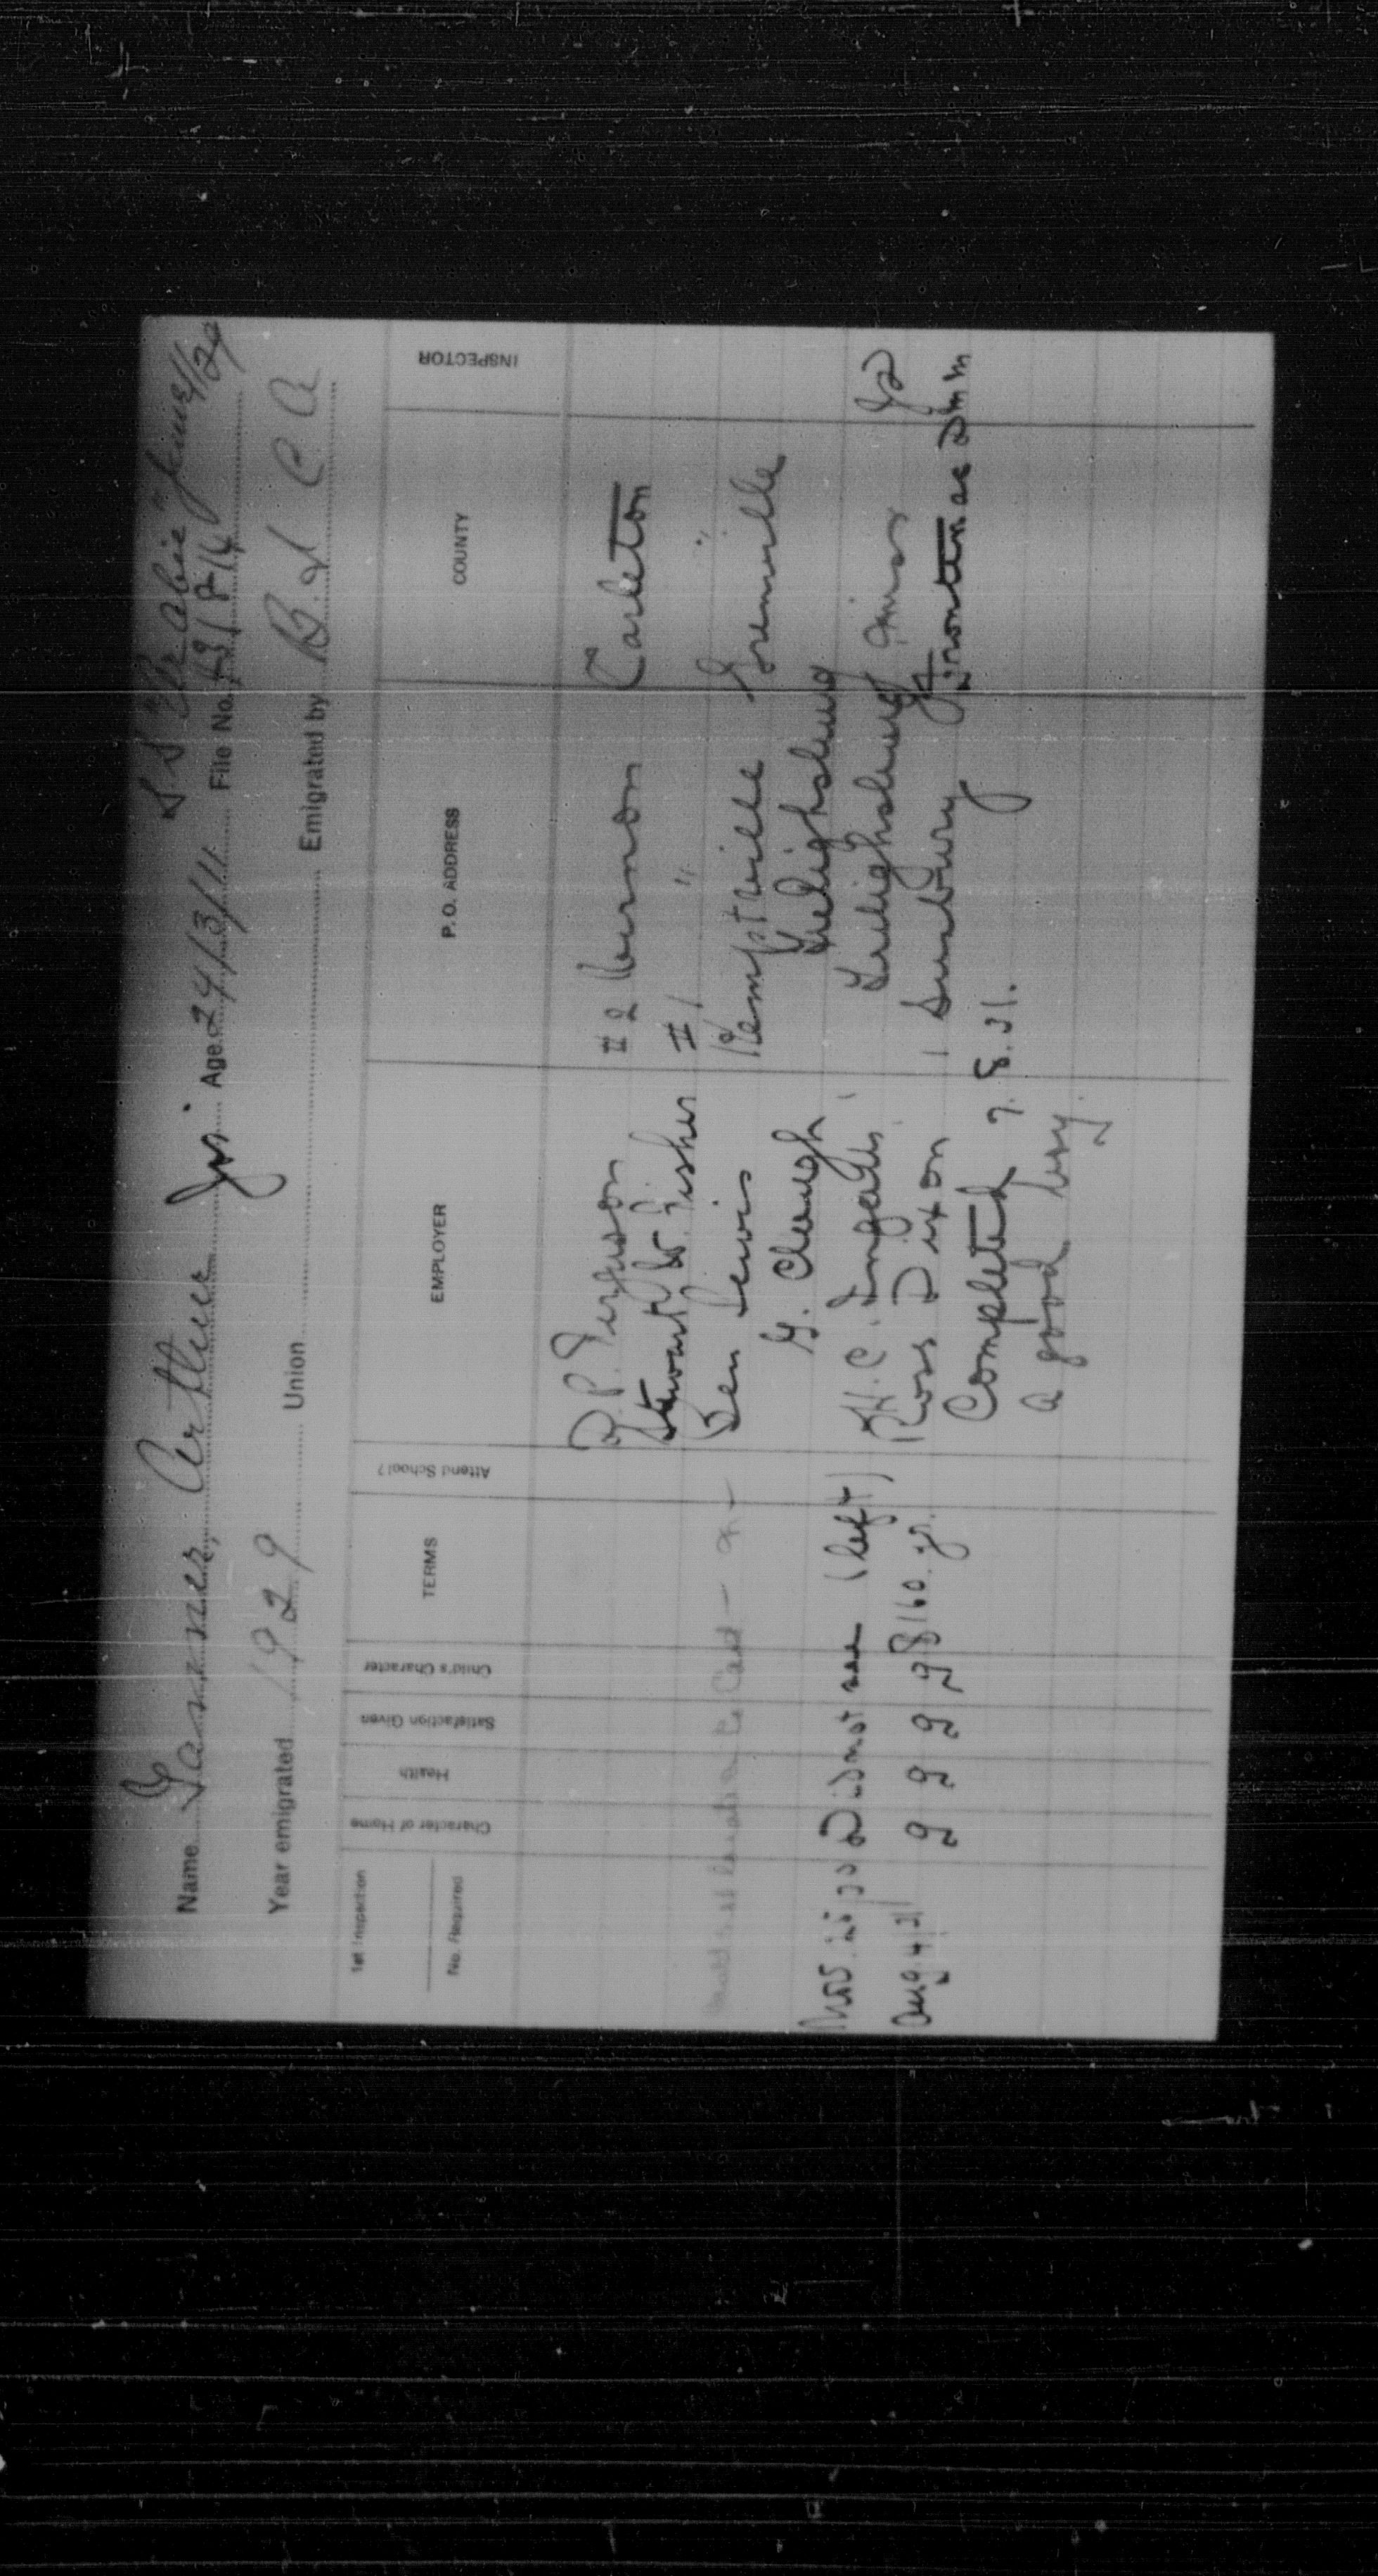 S S Arabic June 1/29
Name Garner, Arthur Jas. Age 24/3/11 File No.
Year emigrated 1929 Union Emigrated by B I C A
1st Inspection
No. Required Character of Home Health Satisfaction Given Child's Character TERMS Attend School? EMPLOYER P. O. ADDRESS COUNTY INSPECTOR
R. P. Ferguson # 2 Vernon Carleton
Stewart W. Fisher # 1 " "
Ben Lewis Kemptville Grenville
G. Clough Frelighsburg
Nov. 25 30 Did not see (left) H. C. Frelighsburg
Aug 4 31 g g g g $160. yr. Ross Dixon 1 Sunbury Frontenac
Completed 7. 8. 31.
a good boy.